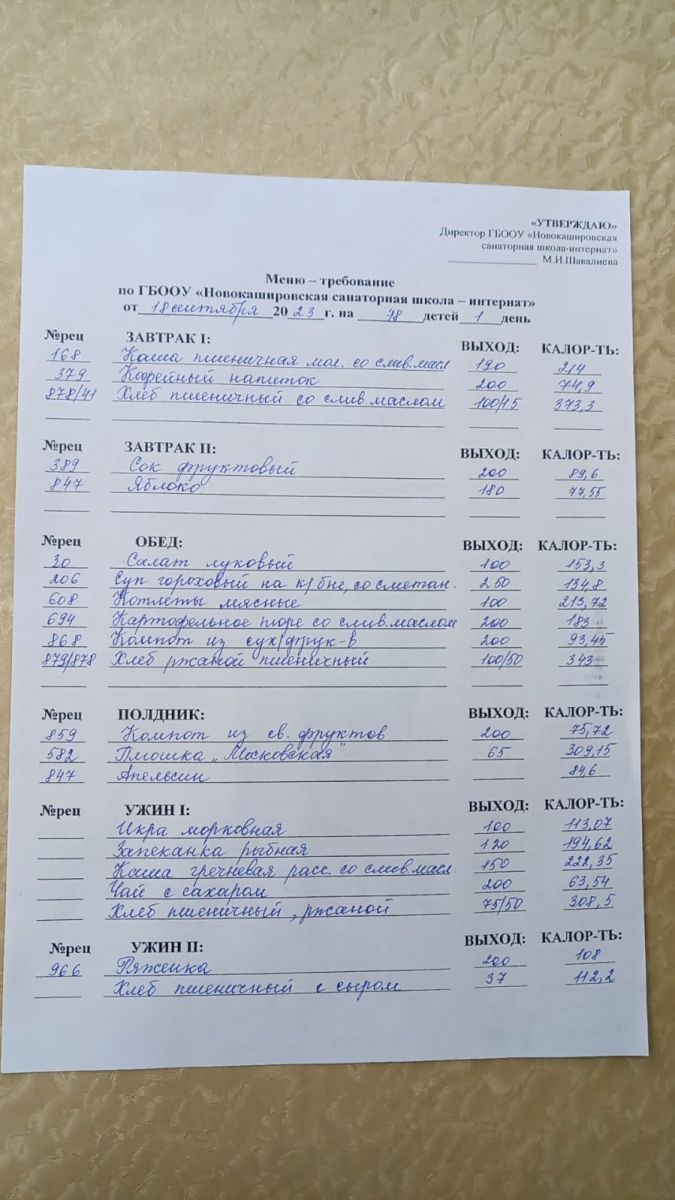 «УТВЕРЖДАЮ»
Директор ГБООУ «Новокашировская
санаторная школа-интернат»
М.И.Шавалиева
Меню – требование
по ГБООУ «Новокашировская санаторная школа – интернат»
от 18 сентября 2023 г. на 78 детей 1 день
№рец ЗАВТРАК I: ВЫХОД: КАЛОР-ТЬ:
168 Каша пшеничная мол. со слив.масл 190 214
379 Кофейный напиток 200 74,9
878/41 Хлеб пшеничный со слив.маслом 100/15 373,3
№рец ЗАВТРАК II: ВЫХОД: КАЛОР-ТЬ:
389 Сок фруктовый 200 89,6
847 Яблоко 180 77,55
№рец ОБЕД: ВЫХОД: КАЛОР-ТЬ:
30 Салат луковый 100 153,3
206 Суп гороховый на к/бне, со сметан. 250 134,8
608 Котлеты мясные 100 213,72
694 Картофельное пюре со слив.маслом 200 183
868 Компот из сух/фрук-в 200 93,45
879/878 Хлеб ржаной пшеничный 100/50 343
№рец ПОЛДНИК: ВЫХОД: КАЛОР-ТЬ:
859 Компот из св. фруктов 200 75,72
582 Плюшка „Московская" 65 309,15
847 Апельсин 84,6
№рец УЖИН I: ВЫХОД: КАЛОР-ТЬ:
Икра морковная 100 113,07
Запеканка рыбная 120 194,62
Каша гречневая расс. со слив.масл 150 222,35
Чай с сахаром 200 63,54
Хлеб пшеничный, ржаной 75/50 308,5
№рец УЖИН II: ВЫХОД: КАЛОР-ТЬ:
966 Ряженка 200 108
Хлеб пшеничный с сыром 37 112,2